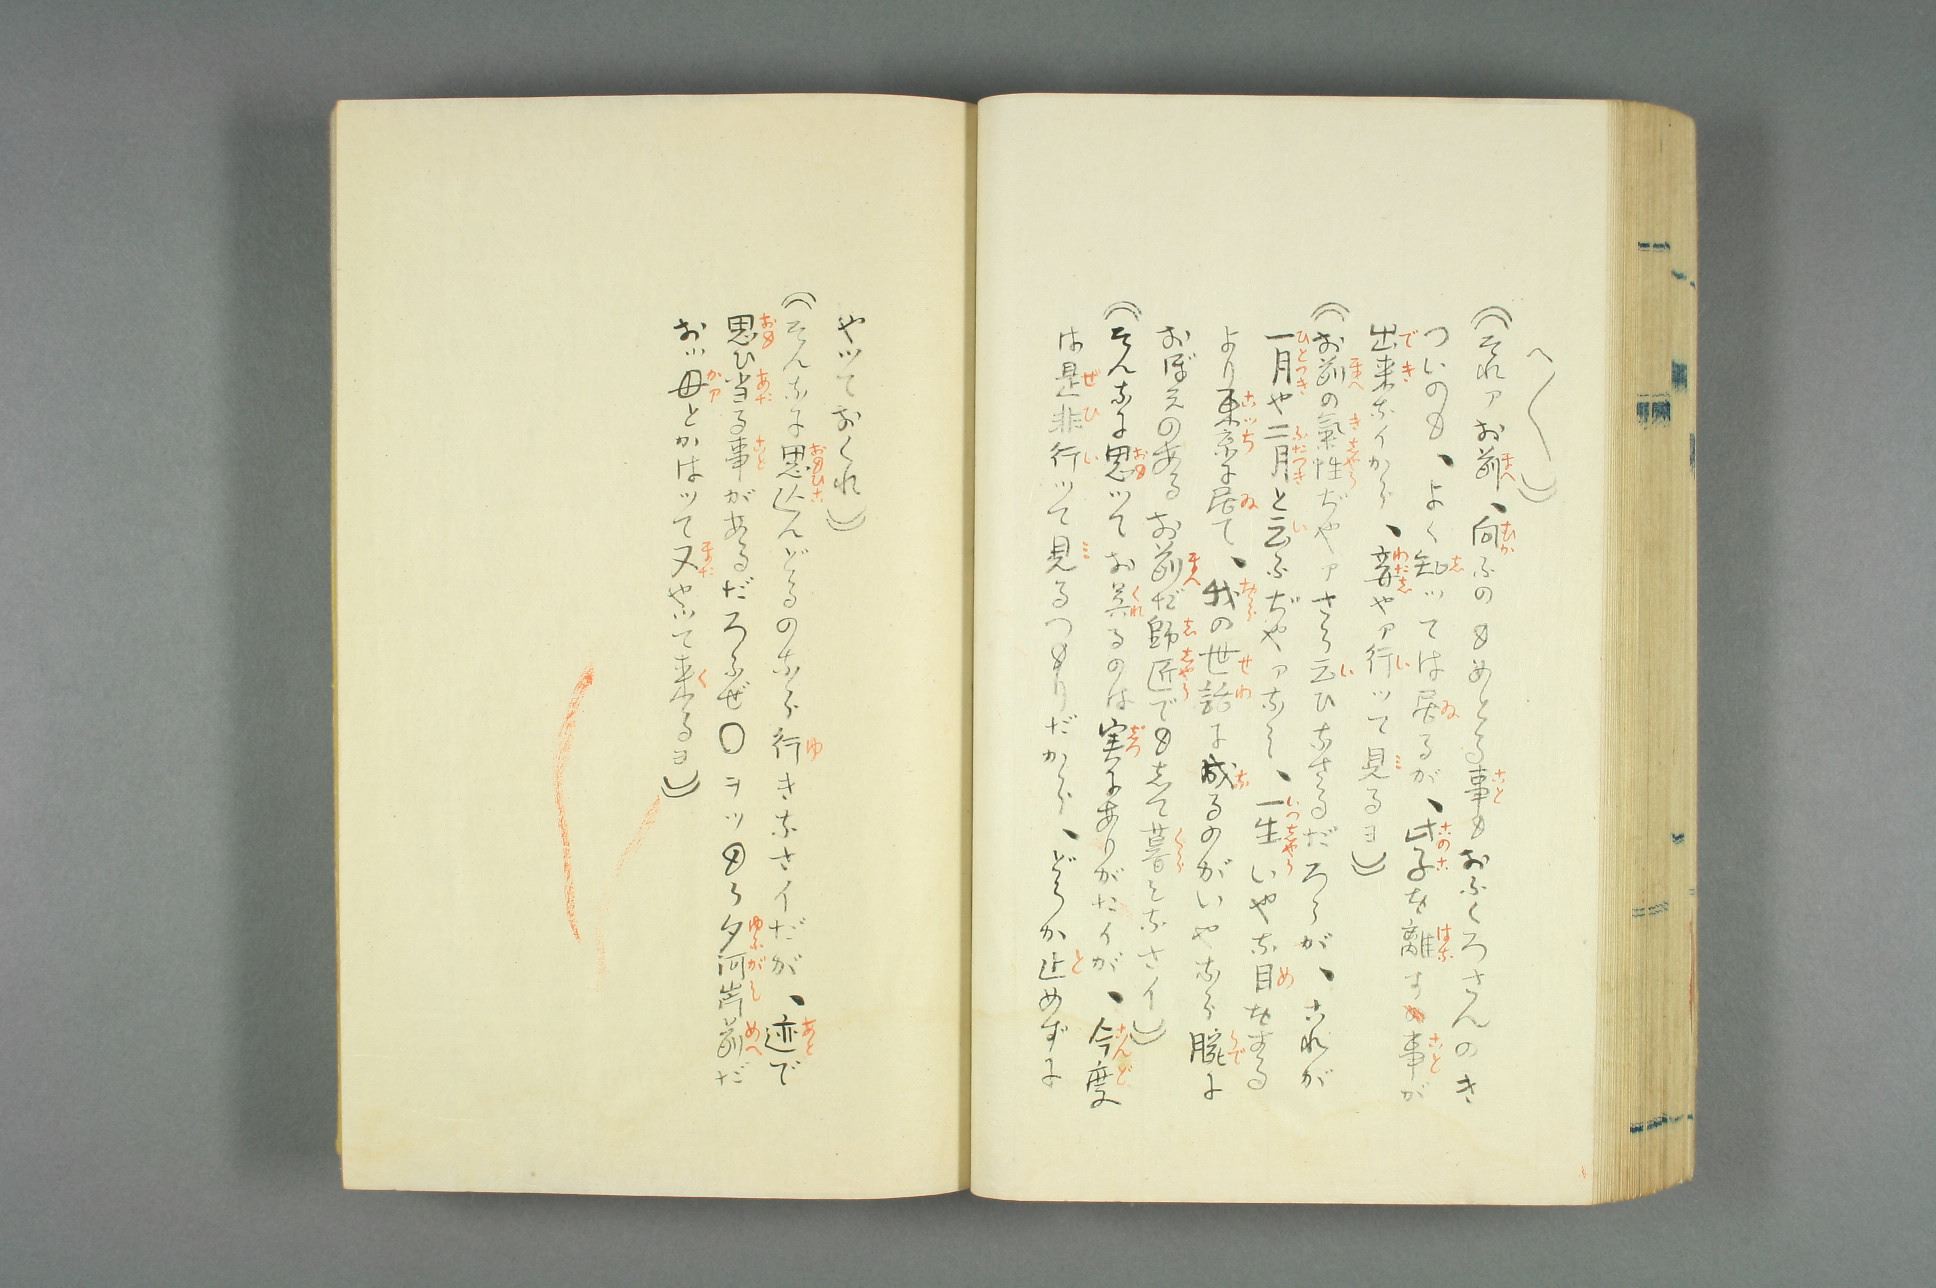 へ〱)
(それァお前、向ふのもめとる事もおふくろさんのき
ついのも、よく知ツては居るが、此子を離す事が
出来ないから、妾やァ行ツて見るヨ)
(お前の氣性ぢやァさう云ひなさるだろうが、これが
一月や二月と云ふぢやァなし、一生いやな目をする
より東京に居て、我の世話に成るのがいやなら腕に
おぼえのあるお前だ師匠でもして暮しなさイ)
(そんなに思ツてお呉るのは実にありがたイが、今度
は是非行ツて見るつもりだから、どうか止めずに
やツておくれ)
(そんなに思込んどるのなら行きなさイだが、迹で
思ひ当る事があるだろふぜ〇ヲツもう夕河岸前だ
おツ母とかはツて又やツて来るヨ)